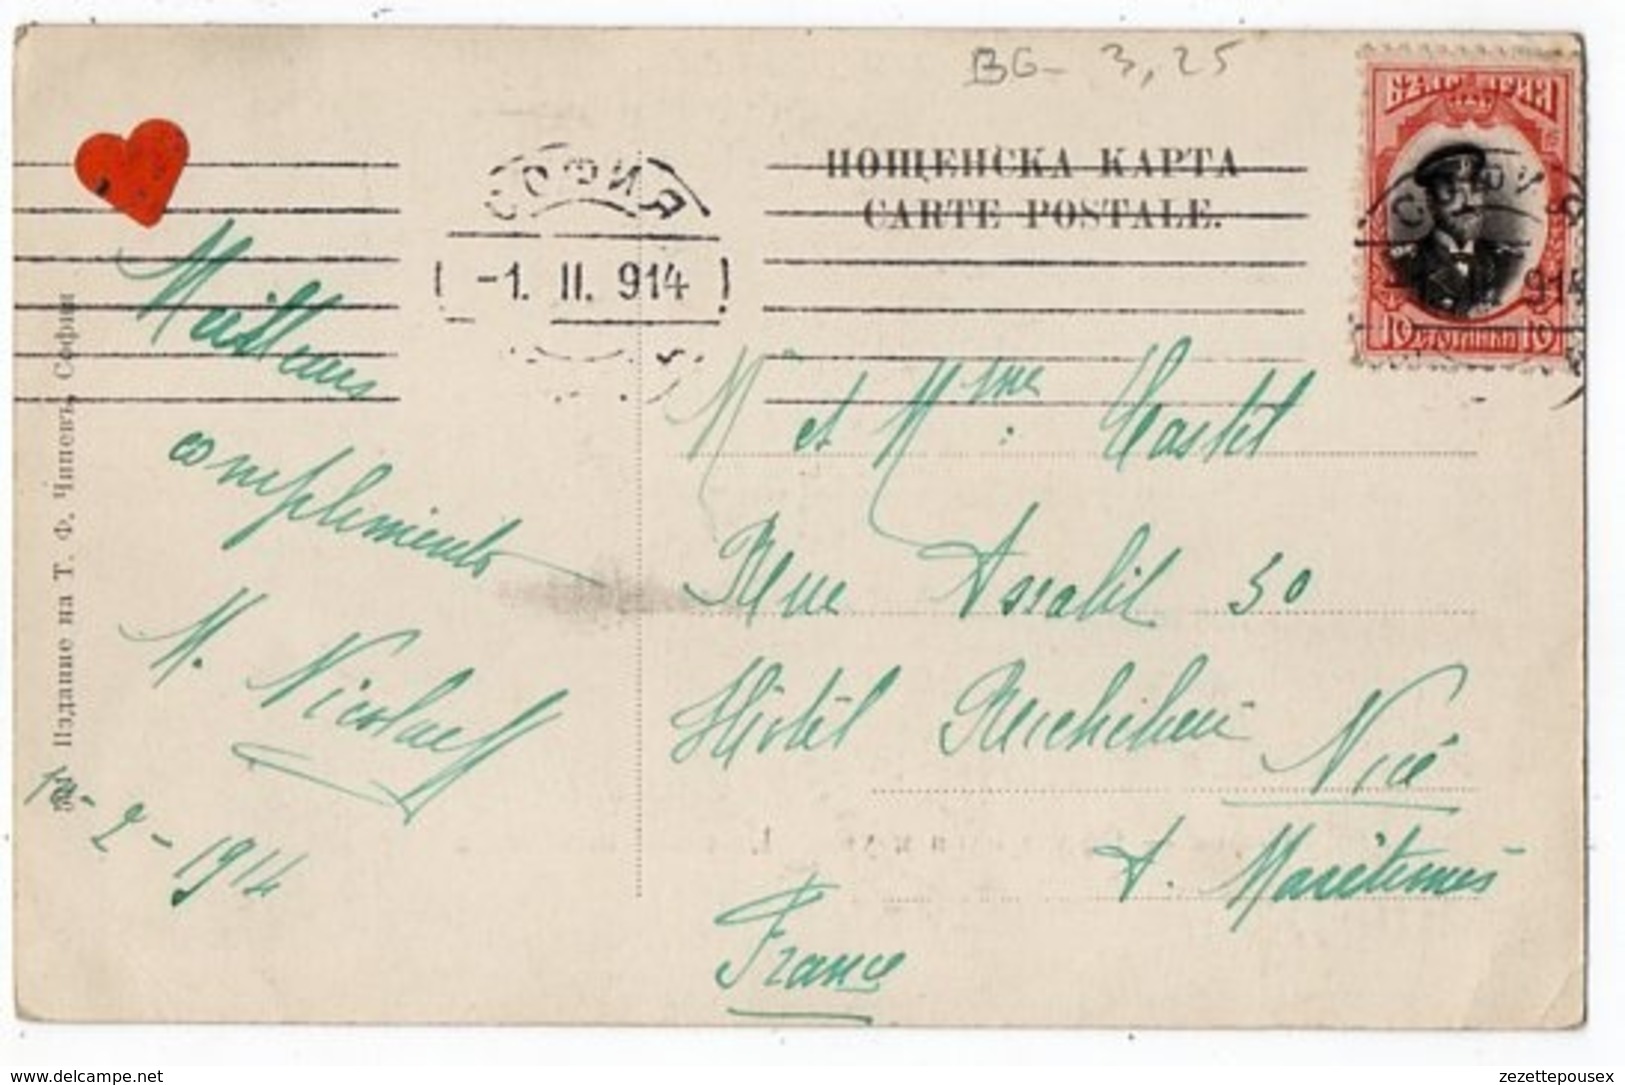 BG- 3,25
ПОЩЕНСКА КАРТА
CARTE POSTALE.
СОФИЯ
-1. II. 914
БЪЛГАРИЯ
10 СТОТИНКИ 10
Meilleurs
compliments
M. Nicolaeff
1-2-1914
M et Mme: Castel
Rue Assalit 30
Hôtel
Nice
A. Maritimes
France
Издание на Т. Ф. Чипевъ, София
www.delcampe.net
zezettepousex